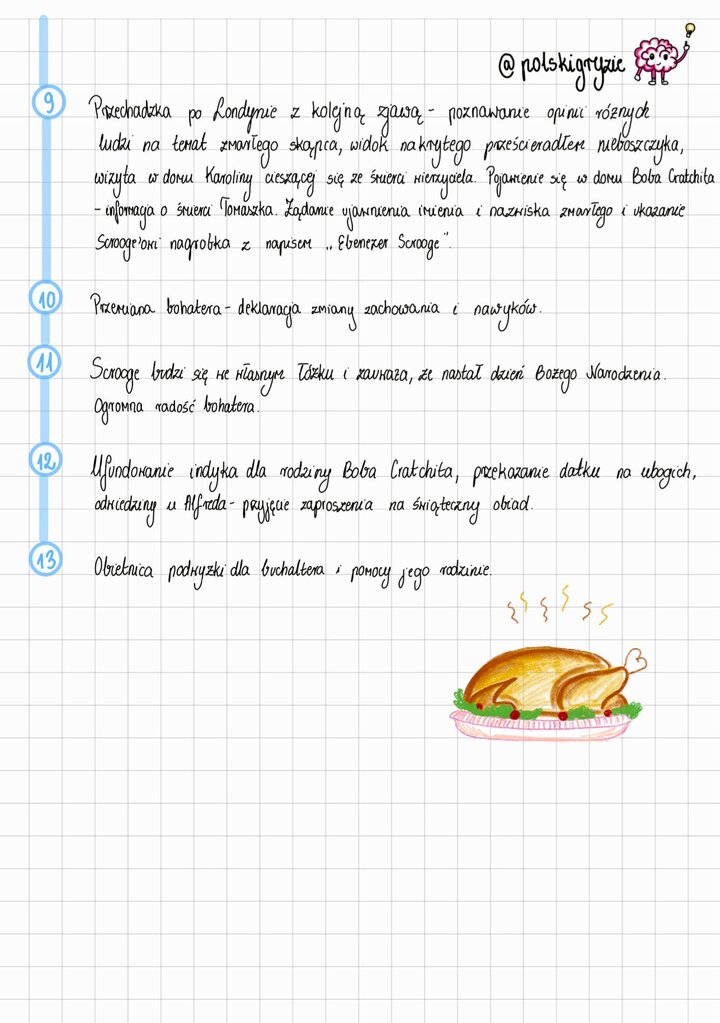 @polskigryzie
9 Przechadzka po Londynie z kolejną zjawą - poznawanie opinii różnych
ludzi na temat zmarłego skąpca, widok nakrytego prześcieradłem nieboszczyka,
wizyta w domu Karoliny cieszącej się ze śmierci wierzyciela. Pojawienie się w domu Boba Cratchita
- informacja o śmierci Tomaszka. Żądanie ujawnienia imienia i nazwiska zmarłego i ukazanie
Scrooge'owi nagrobka z napisem „Ebenezer Scrooge".
10 Przemiana bohatera - deklaracja zmiany zachowania i nawyków.
11 Scrooge budzi się we własnym łóżku i zauważa, że nastał dzień Bożego Narodzenia.
Ogromna radość bohatera.
12 Ufundowanie indyka dla rodziny Boba Cratchita, przekazanie datku na ubogich,
odwiedziny u Alfreda - przyjęcie zaproszenia na świąteczny obiad.
13 Obietnica podwyżki dla buchaltera i pomocy jego rodzinie.